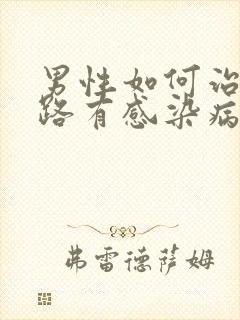 男性如何治
路有感染病
弗雷德萨姆